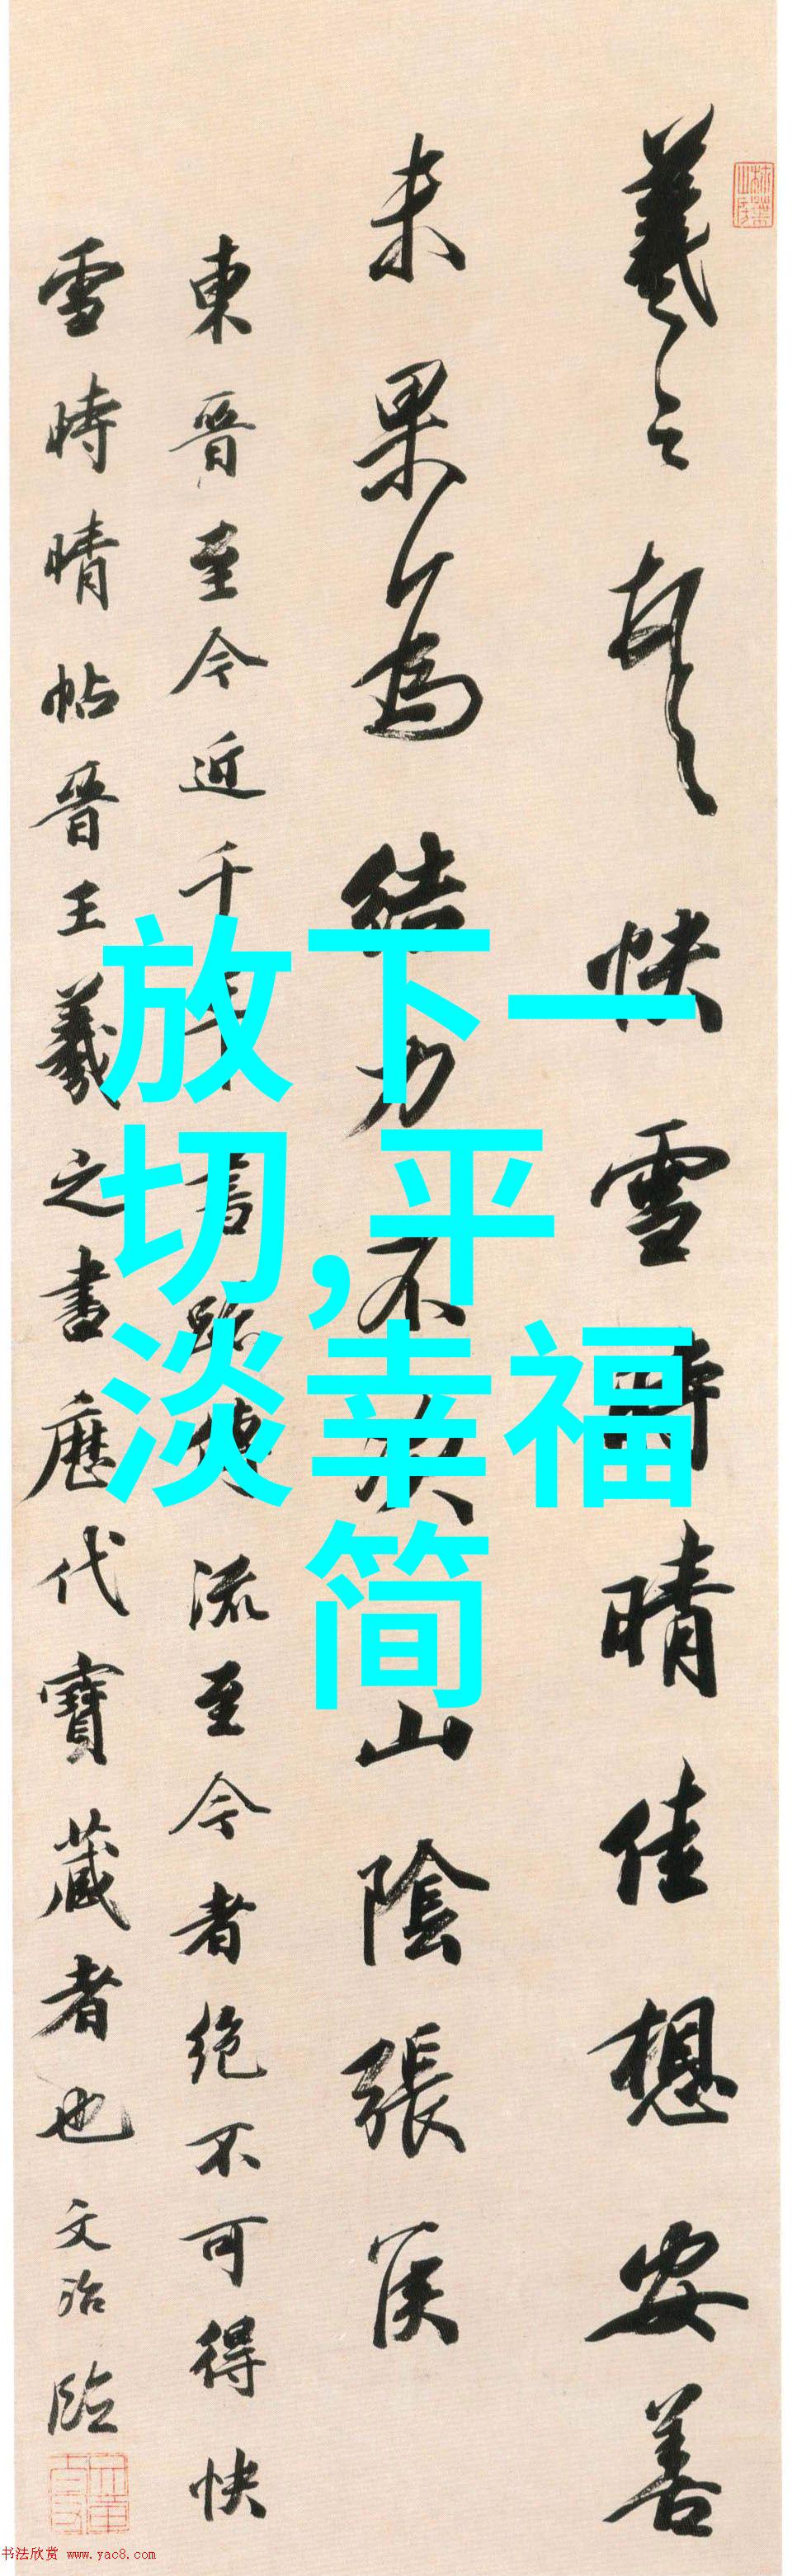 羲之頓首快雪時晴佳想安善
未果為結力不次山陰張侯
東晉至今近千年書跡傳流至今者絕不可得快
雪時晴帖晉王羲之書歷代寶藏者也文治臨
放下一
切,平
淡幸福
简
书法欣赏 www.yac8.com